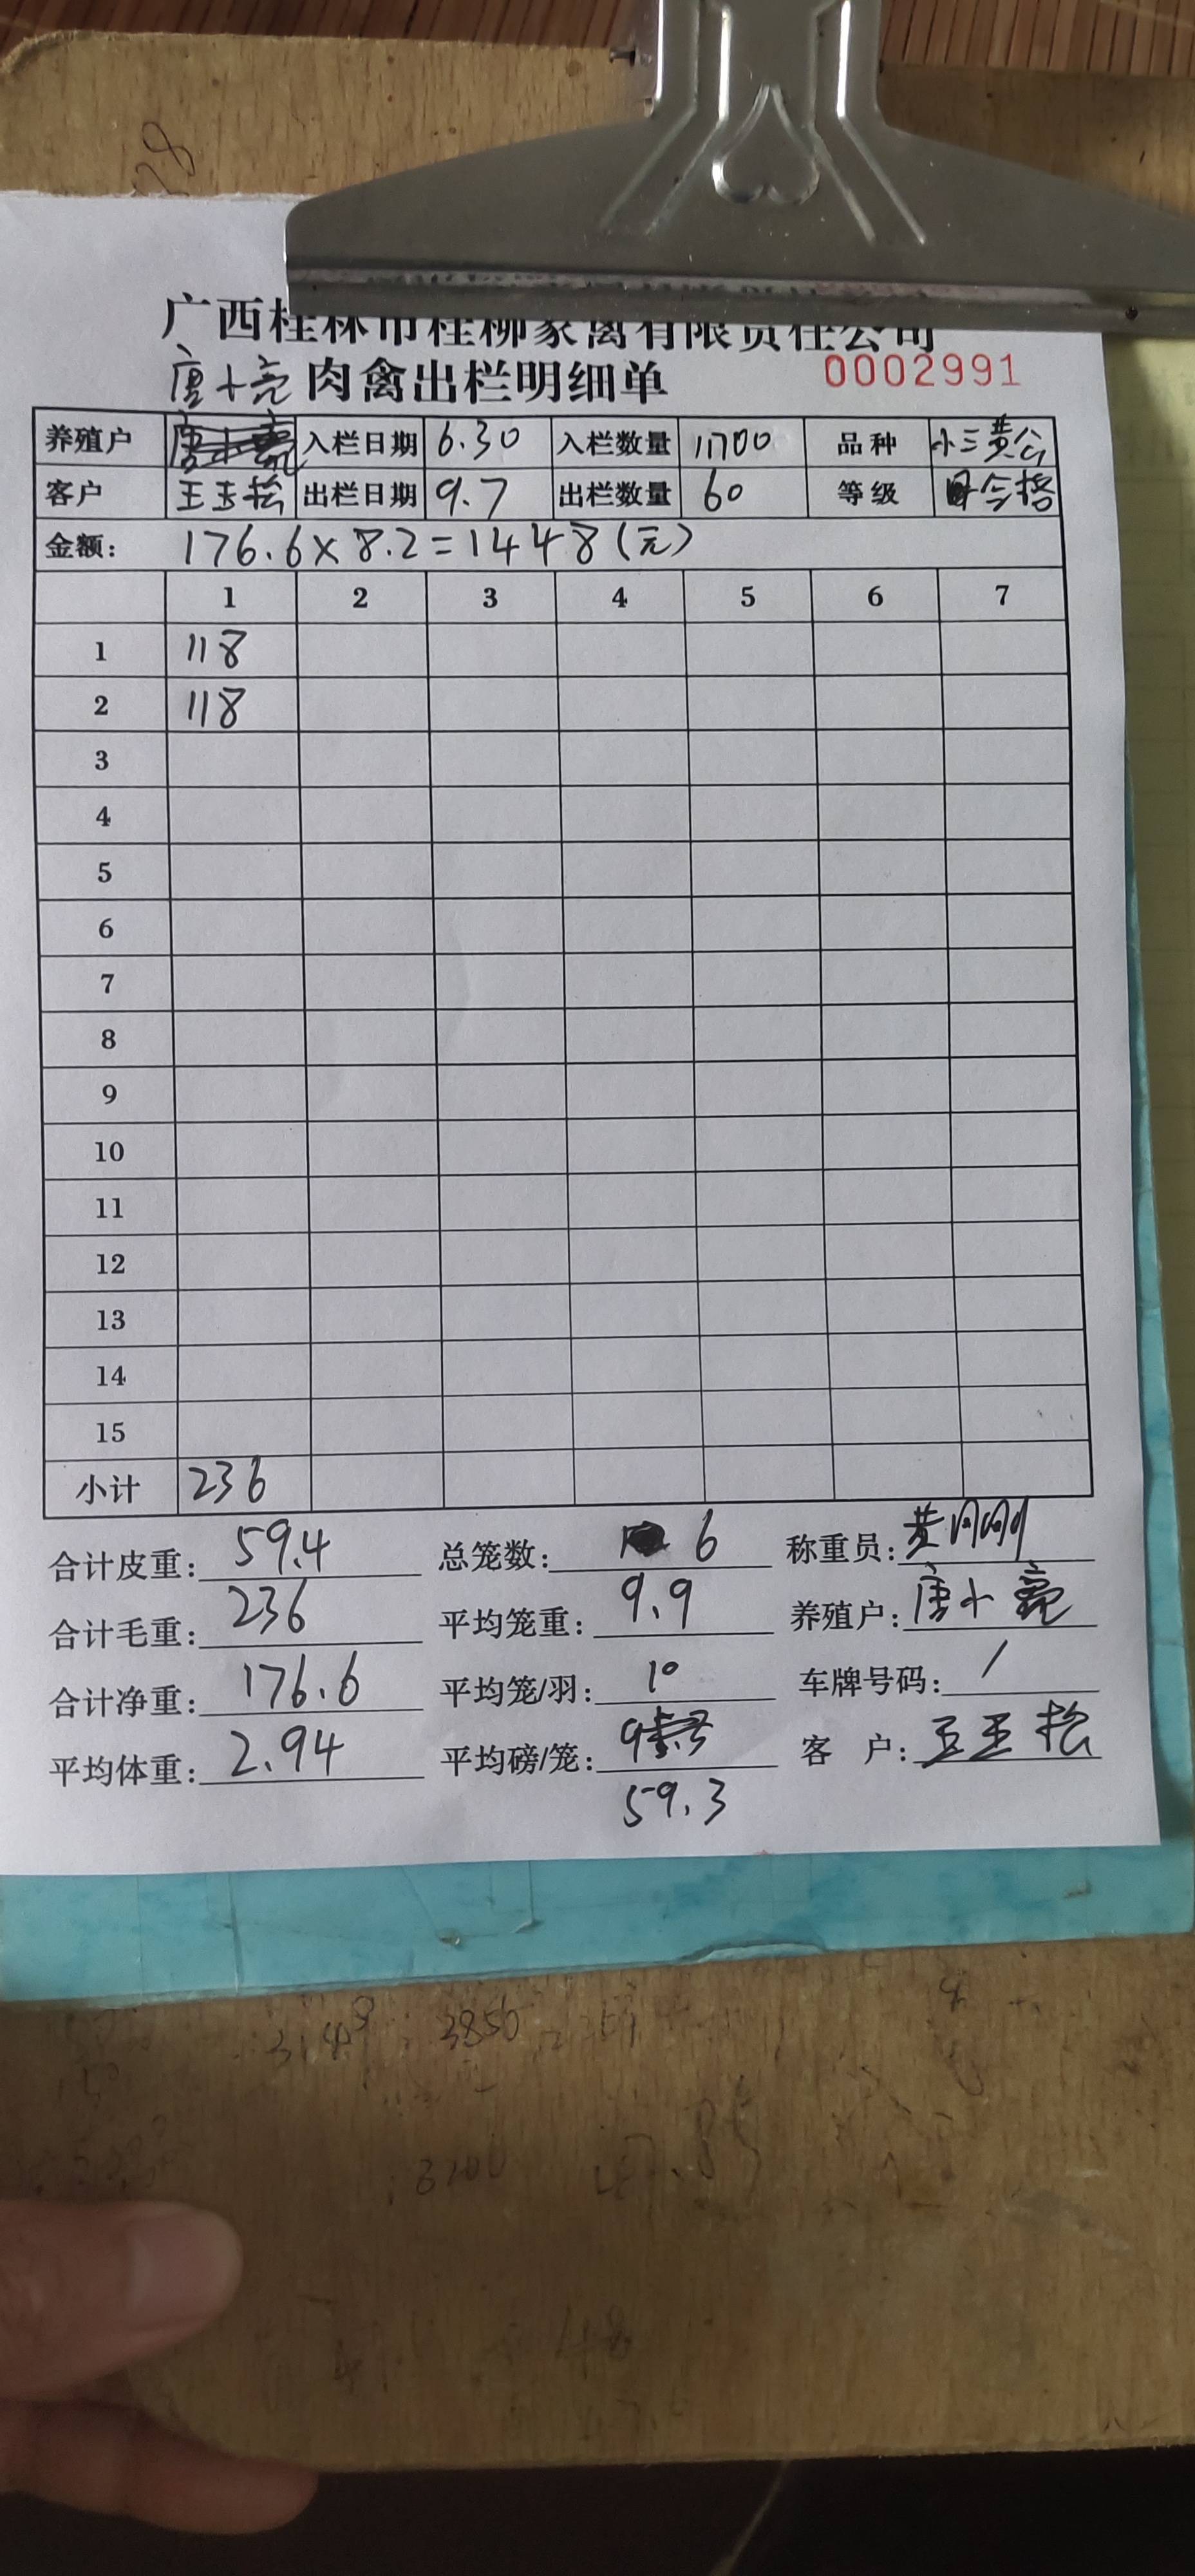 广西桂林市桂柳家禽有限责任公司
唐小亮 肉禽出栏明细单 0002991
养殖户 入栏日期 6.30 入栏数量 11700 品种 小三黄公
客户 王玉松 出栏日期 9.7 出栏数量 60 等级 合格
金额: 176.6×8.2=1448(元)
1 2 3 4 5 6 7
1 118
2 118
3
4
5
6
7
8
9
10
11
12
13
14
15
小计 236
合计皮重: 59.4 总笼数: 6 称重员: 黄刚
合计毛重: 236 平均笼重: 9.9 养殖户: 唐小亮
合计净重: 176.6 平均笼/羽: 10 车牌号码: /
平均体重: 2.94 平均磅/笼: 客 户: 王玉松
59.3